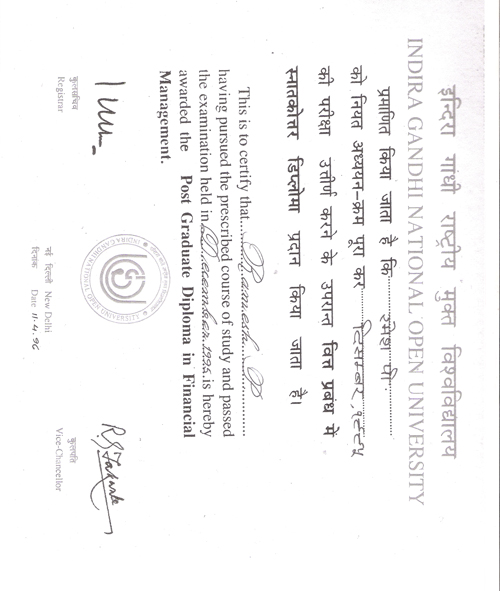 इन्दिरा गांधी राष्ट्रीय मुक्त विश्वविद्यालय
INDIRA GANDHI NATIONAL OPEN UNIVERSITY
प्रमाणित किया जाता है कि...........रमेश पी..............
को नियत अध्ययन-क्रम पूरा कर..........दिसम्बर, १९९५
की परीक्षा उत्तीर्ण करने के उपरान्त वित्त प्रबंध में
स्नातकोत्तर डिप्लोमा प्रदान किया जाता है।
This is to certify that.....Ramesh. P..............
having pursued the prescribed course of study and passed
the examination held in..December.1995.is hereby
awarded the Post Graduate Diploma in Financial
Management.
कुलसचिव
Registrar
नई दिल्ली New Delhi
दिनांक Date 11.4.96
कुलपति
Vice-Chancellor